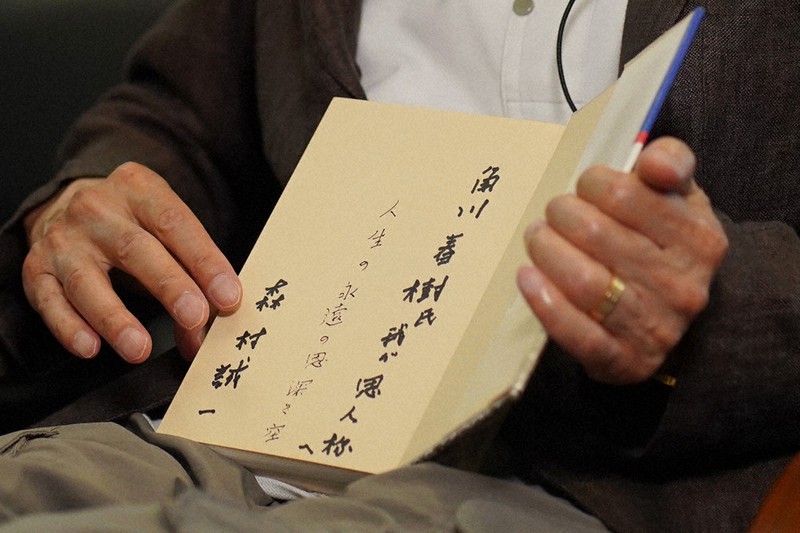 角川春樹氏 我が恩人様へ
人生の永遠の恩深き空
森村誠一